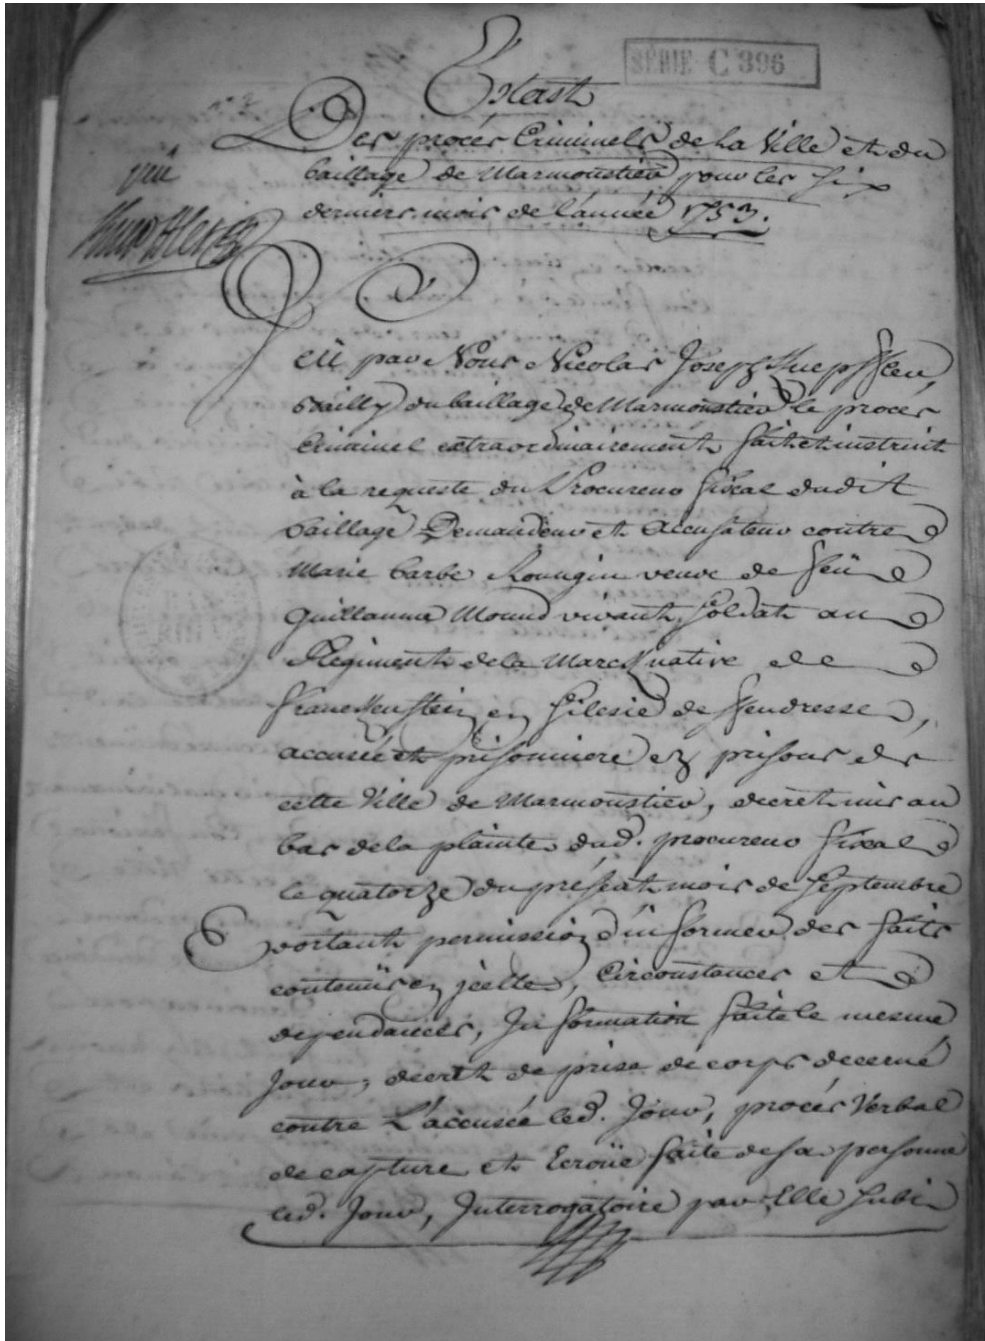 SÉRIE C 396
Estast
Des procés Criminels de la Ville et du
vû
baillage de Marmoustier pour les six
derniers mois de l'année 1753.
Veü par Nous Nicolas Joseph
Bailly du baillage de Marmoustier le procés
Criminel extraordinairement fait et instruit
à la requeste du Procureur fiscal dudit
baillage Demandeur et accusateur contre
Marie barbe veuve de feü
guillaume vivant soldat au
Regiment de la Marck native de
franckenstein en silesie de
accusée et prisonniere ez prisons de
cette Ville de Marmoustier, decret mis au
bas de la plainte dud. procureur fiscal
le quatorze du présent mois de Septembre
portant permission d'informer des faits
contenus en jcelle, Circonstances et
dependances, Information faite le mesme
jour, decret de prise de corps decerné
contre L'accusée led. Jour, procés Verbal
de capture et Ecroüe faite de sa personne
led. Jour, Interrogatoire par Elle subi